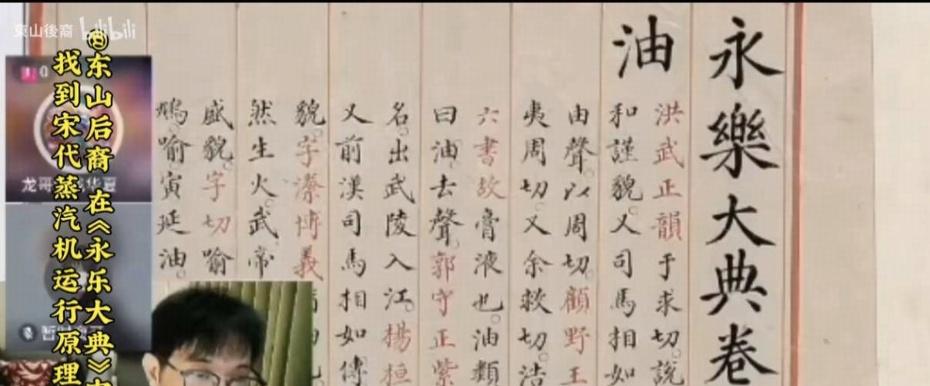 東山後裔 bilibili
永樂大典卷
油
洪武正韻于求切說
和謹貌。又司馬相如
由聲。以周切。顧野王
夷周切。又余救切。浩
六書故膏液也。油類
曰油。去聲。郭守正紫
名。出武陵入江。楊桓
又前漢司馬相如傳
貌。字潫博義
然生火。武帝
盛貌。字切喻
鳩。喻寅延油。
东山后裔在《永乐大典》
找到宋代蒸汽机运行原理
龙哥